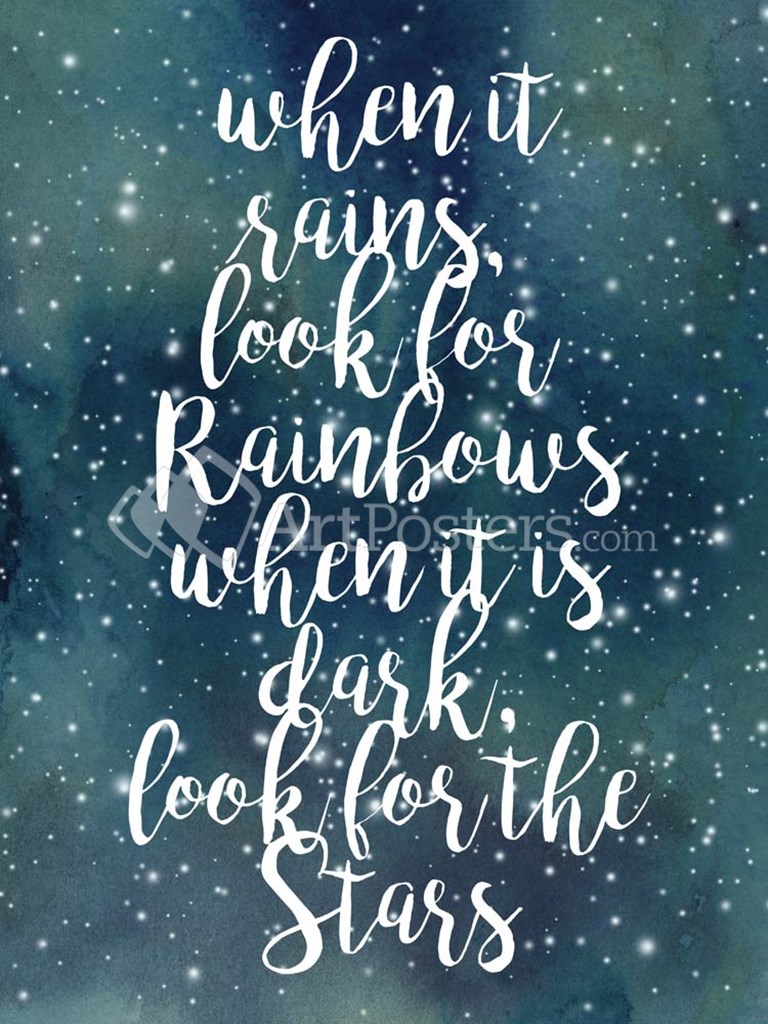 when it
rains,
look for
Rainbows
ArtPosters.com
when it is
dark,
look for the
Stars